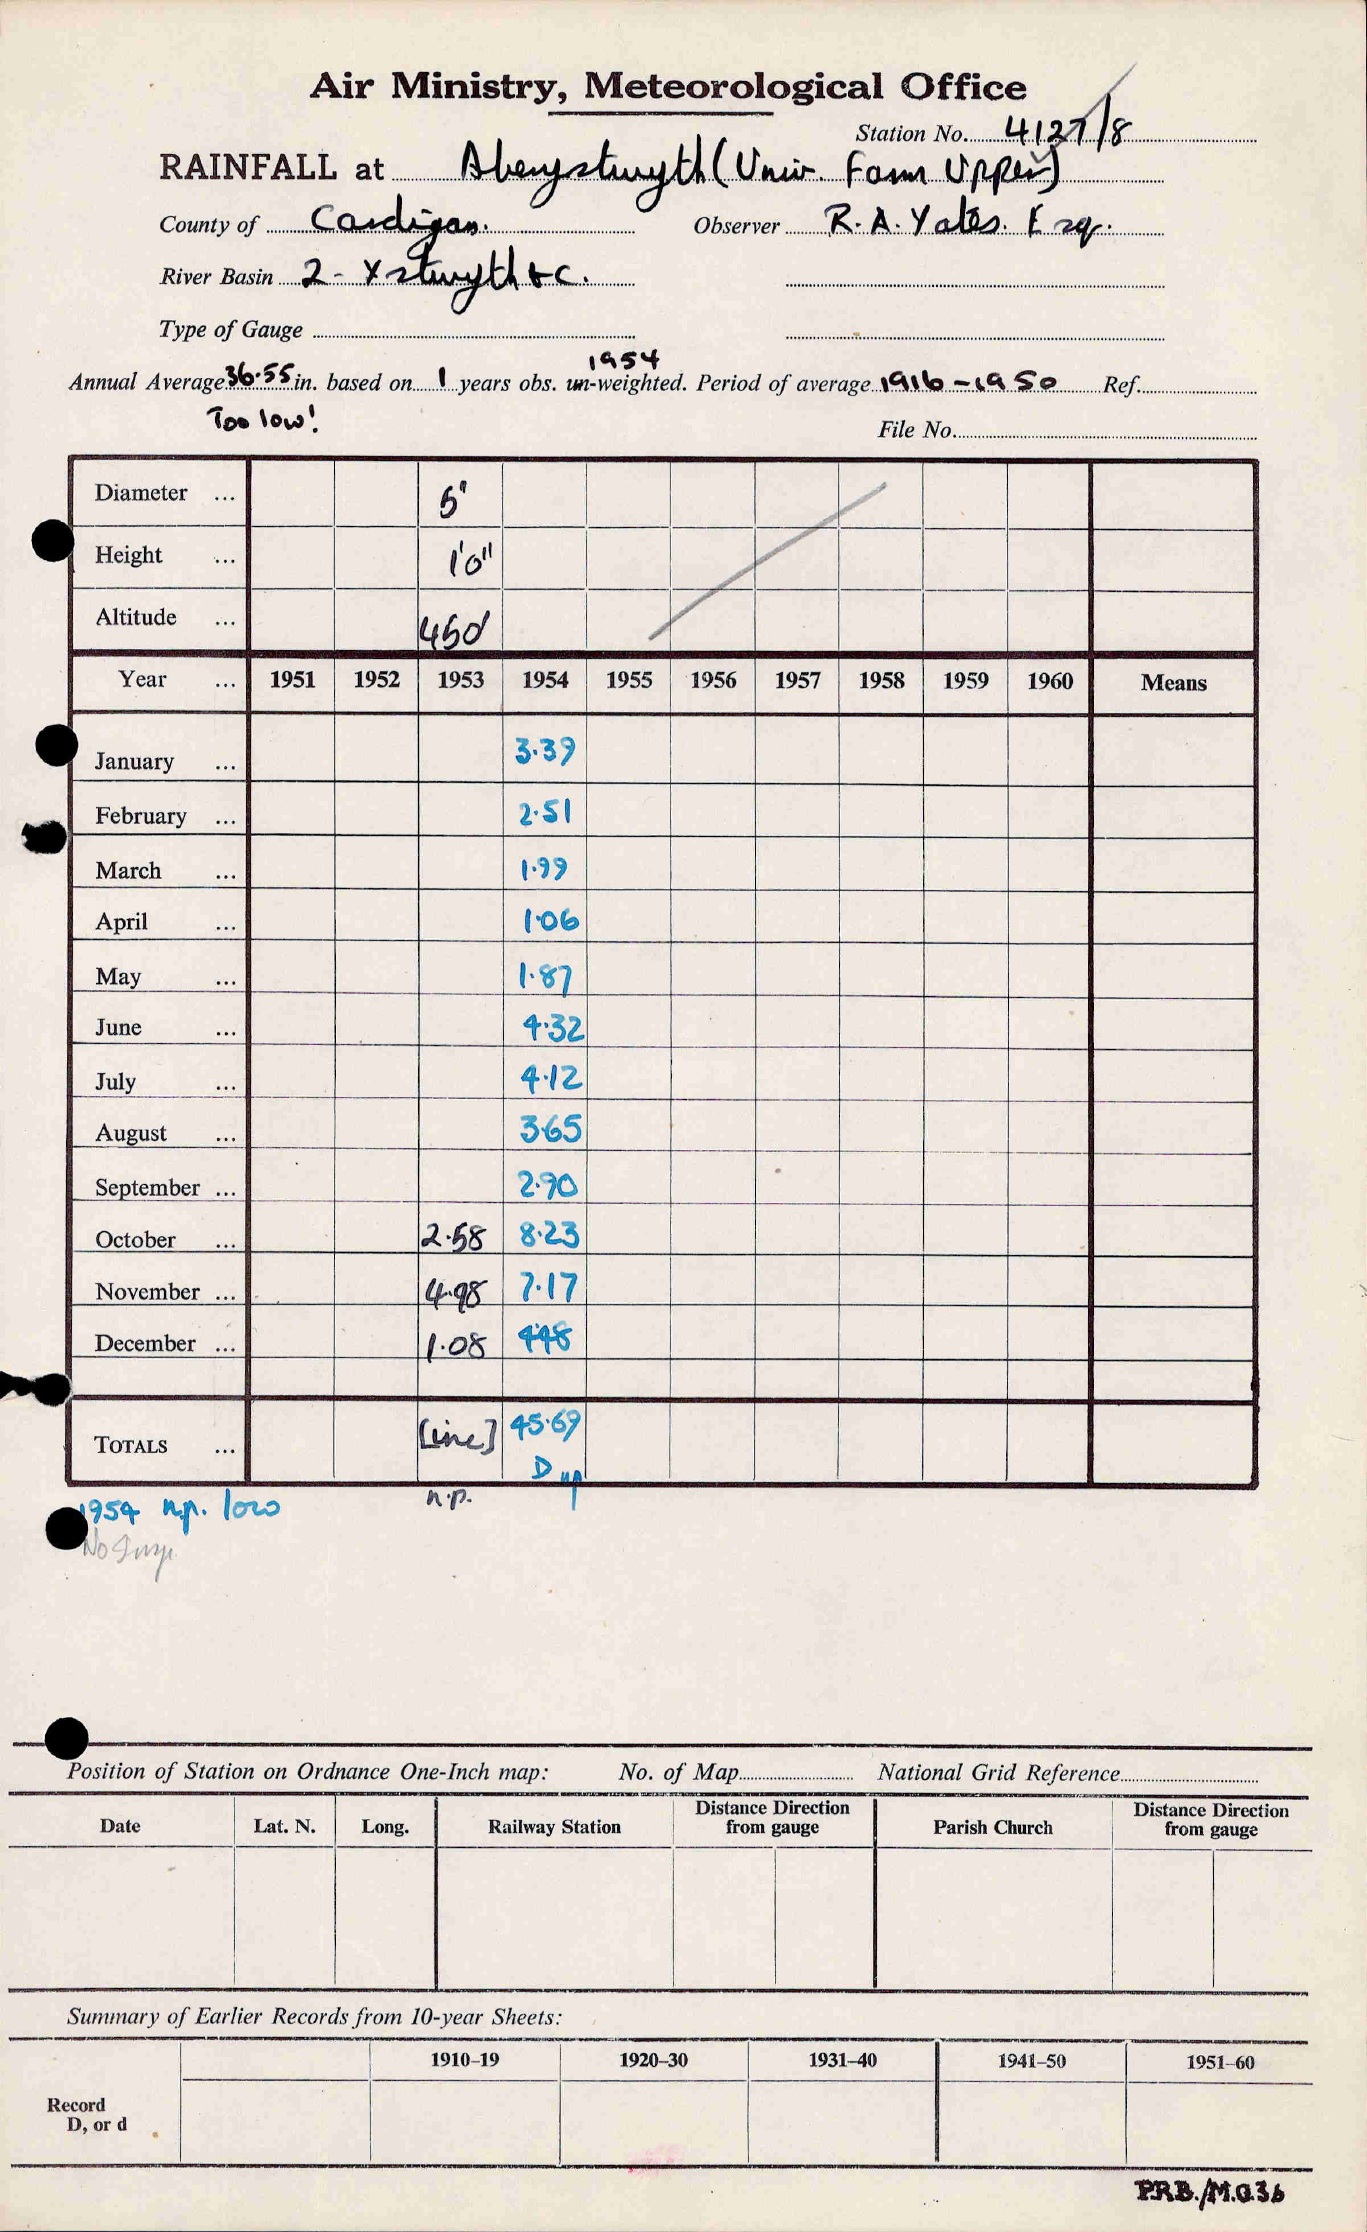 Air Ministry, Meteorological Office
Station No. 4127/8
RAINFALL at Aberystwyth (Univ. Farm Upper)
County of Cardigan. Observer R. A. Yates. Esq.
River Basin 2 - Ystwyth &c.
Type of Gauge
1954
Annual Average 36.55 in. based on 1 years obs. un-weighted. Period of average 1916-1950 Ref.
Too low!
File No.
Diameter ... 5"
Height ... 1'0"
Altitude ... 450'
Year ... 1951 1952 1953 1954 1955 1956 1957 1958 1959 1960 Means
January ... 3.39
February ... 2.51
March ... 1.99
April ... 1.06
May ... 1.87
June ... 4.32
July ... 4.12
August ... 3.65
September ... 2.90
October ... 2.58 8.23
November ... 4.98 7.17
December ... 1.08 4.48
TOTALS ... [inc] 45.69
D np
n.p.
1954 n.p. low
No
Position of Station on Ordnance One-Inch map: No. of Map National Grid Reference
Date Lat. N. Long. Railway Station Distance Direction from gauge Parish Church Distance Direction from gauge
Summary of Earlier Records from 10-year Sheets:
1910–19 1920–30 1931–40 1941–50 1951–60
Record
D, or d
P.R.B./M.O.36